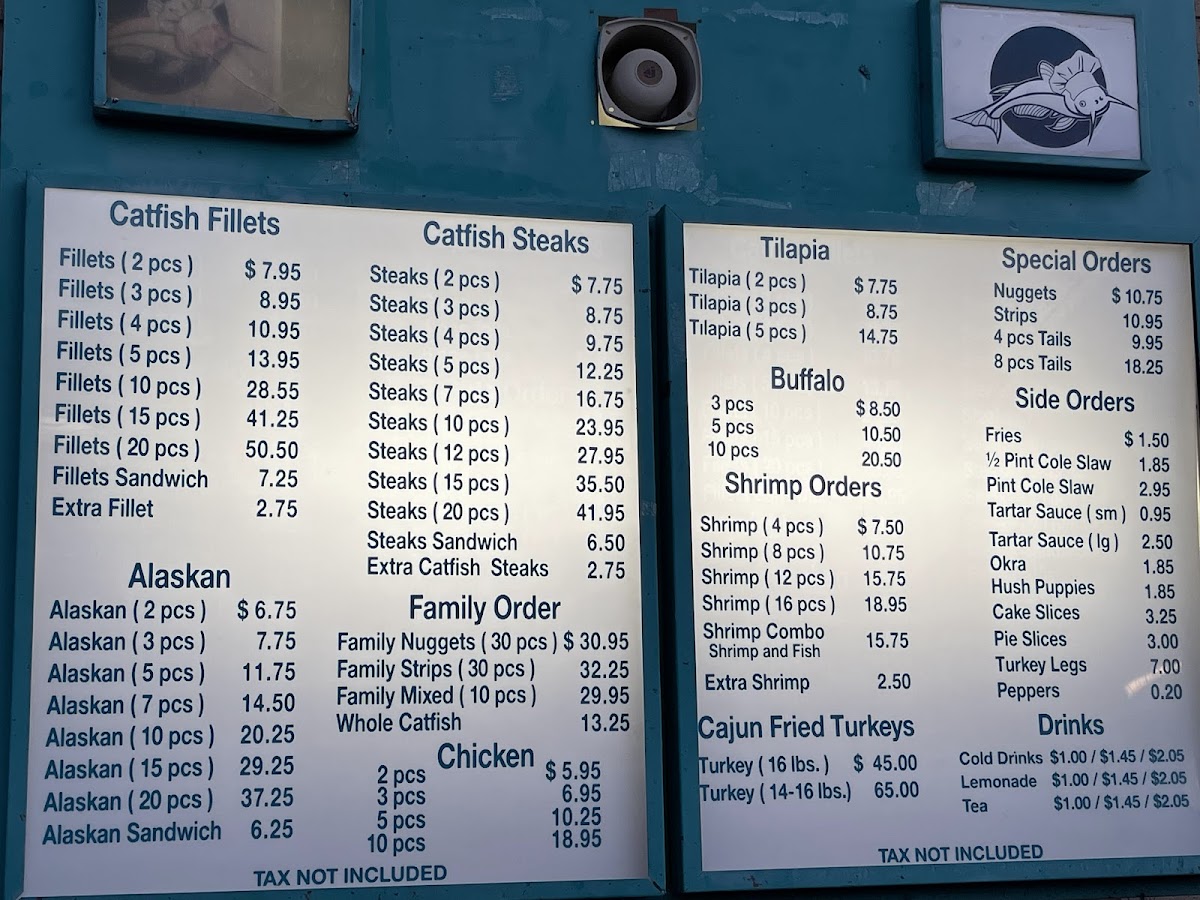 Catfish Fillets
Fillets ( 2 pcs ) $ 7.95
Fillets ( 3 pcs ) 8.95
Fillets ( 4 pcs ) 10.95
Fillets ( 5 pcs ) 13.95
Fillets ( 10 pcs ) 28.55
Fillets ( 15 pcs ) 41.25
Fillets ( 20 pcs ) 50.50
Fillets Sandwich 7.25
Extra Fillet 2.75
Alaskan
Alaskan ( 2 pcs ) $ 6.75
Alaskan ( 3 pcs ) 7.75
Alaskan ( 5 pcs ) 11.75
Alaskan ( 7 pcs ) 14.50
Alaskan ( 10 pcs ) 20.25
Alaskan ( 15 pcs ) 29.25
Alaskan ( 20 pcs ) 37.25
Alaskan Sandwich 6.25
Catfish Steaks
Steaks ( 2 pcs ) $ 7.75
Steaks ( 3 pcs ) 8.75
Steaks ( 4 pcs ) 9.75
Steaks ( 5 pcs ) 12.25
Steaks ( 7 pcs ) 16.75
Steaks ( 10 pcs ) 23.95
Steaks ( 12 pcs ) 27.95
Steaks ( 15 pcs ) 35.50
Steaks ( 20 pcs ) 41.95
Steaks Sandwich 6.50
Extra Catfish Steaks 2.75
Family Order
Family Nuggets ( 30 pcs ) $ 30.95
Family Strips ( 30 pcs ) 32.25
Family Mixed ( 10 pcs ) 29.95
Whole Catfish 13.25
Chicken
2 pcs $ 5.95
3 pcs 6.95
5 pcs 10.25
10 pcs 18.95
TAX NOT INCLUDED
Tilapia
Tilapia ( 2 pcs ) $ 7.75
Tilapia ( 3 pcs ) 8.75
Tilapia ( 5 pcs ) 14.75
Buffalo
3 pcs $ 8.50
5 pcs 10.50
10 pcs 20.50
Shrimp Orders
Shrimp ( 4 pcs ) $ 7.50
Shrimp ( 8 pcs ) 10.75
Shrimp ( 12 pcs ) 15.75
Shrimp ( 16 pcs ) 18.95
Shrimp Combo 15.75
Shrimp and Fish
Extra Shrimp 2.50
Cajun Fried Turkeys
Turkey ( 16 lbs. ) $ 45.00
Turkey ( 14-16 lbs.) 65.00
Special Orders
Nuggets $ 10.75
Strips 10.95
4 pcs Tails 9.95
8 pcs Tails 18.25
Side Orders
Fries $ 1.50
½ Pint Cole Slaw 1.85
Pint Cole Slaw 2.95
Tartar Sauce ( sm ) 0.95
Tartar Sauce ( lg ) 2.50
Okra 1.85
Hush Puppies 1.85
Cake Slices 3.25
Pie Slices 3.00
Turkey Legs 7.00
Peppers 0.20
Drinks
Cold Drinks $1.00 / $1.45 / $2.05
Lemonade $1.00 / $1.45 / $2.05
Tea $1.00 / $1.45 / $2.05
TAX NOT INCLUDED